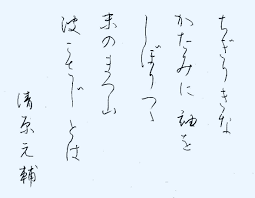 ちぎりきな
かたみに袖を
しぼりつゝ
末のまつ山
波こさじとは
清原元輔